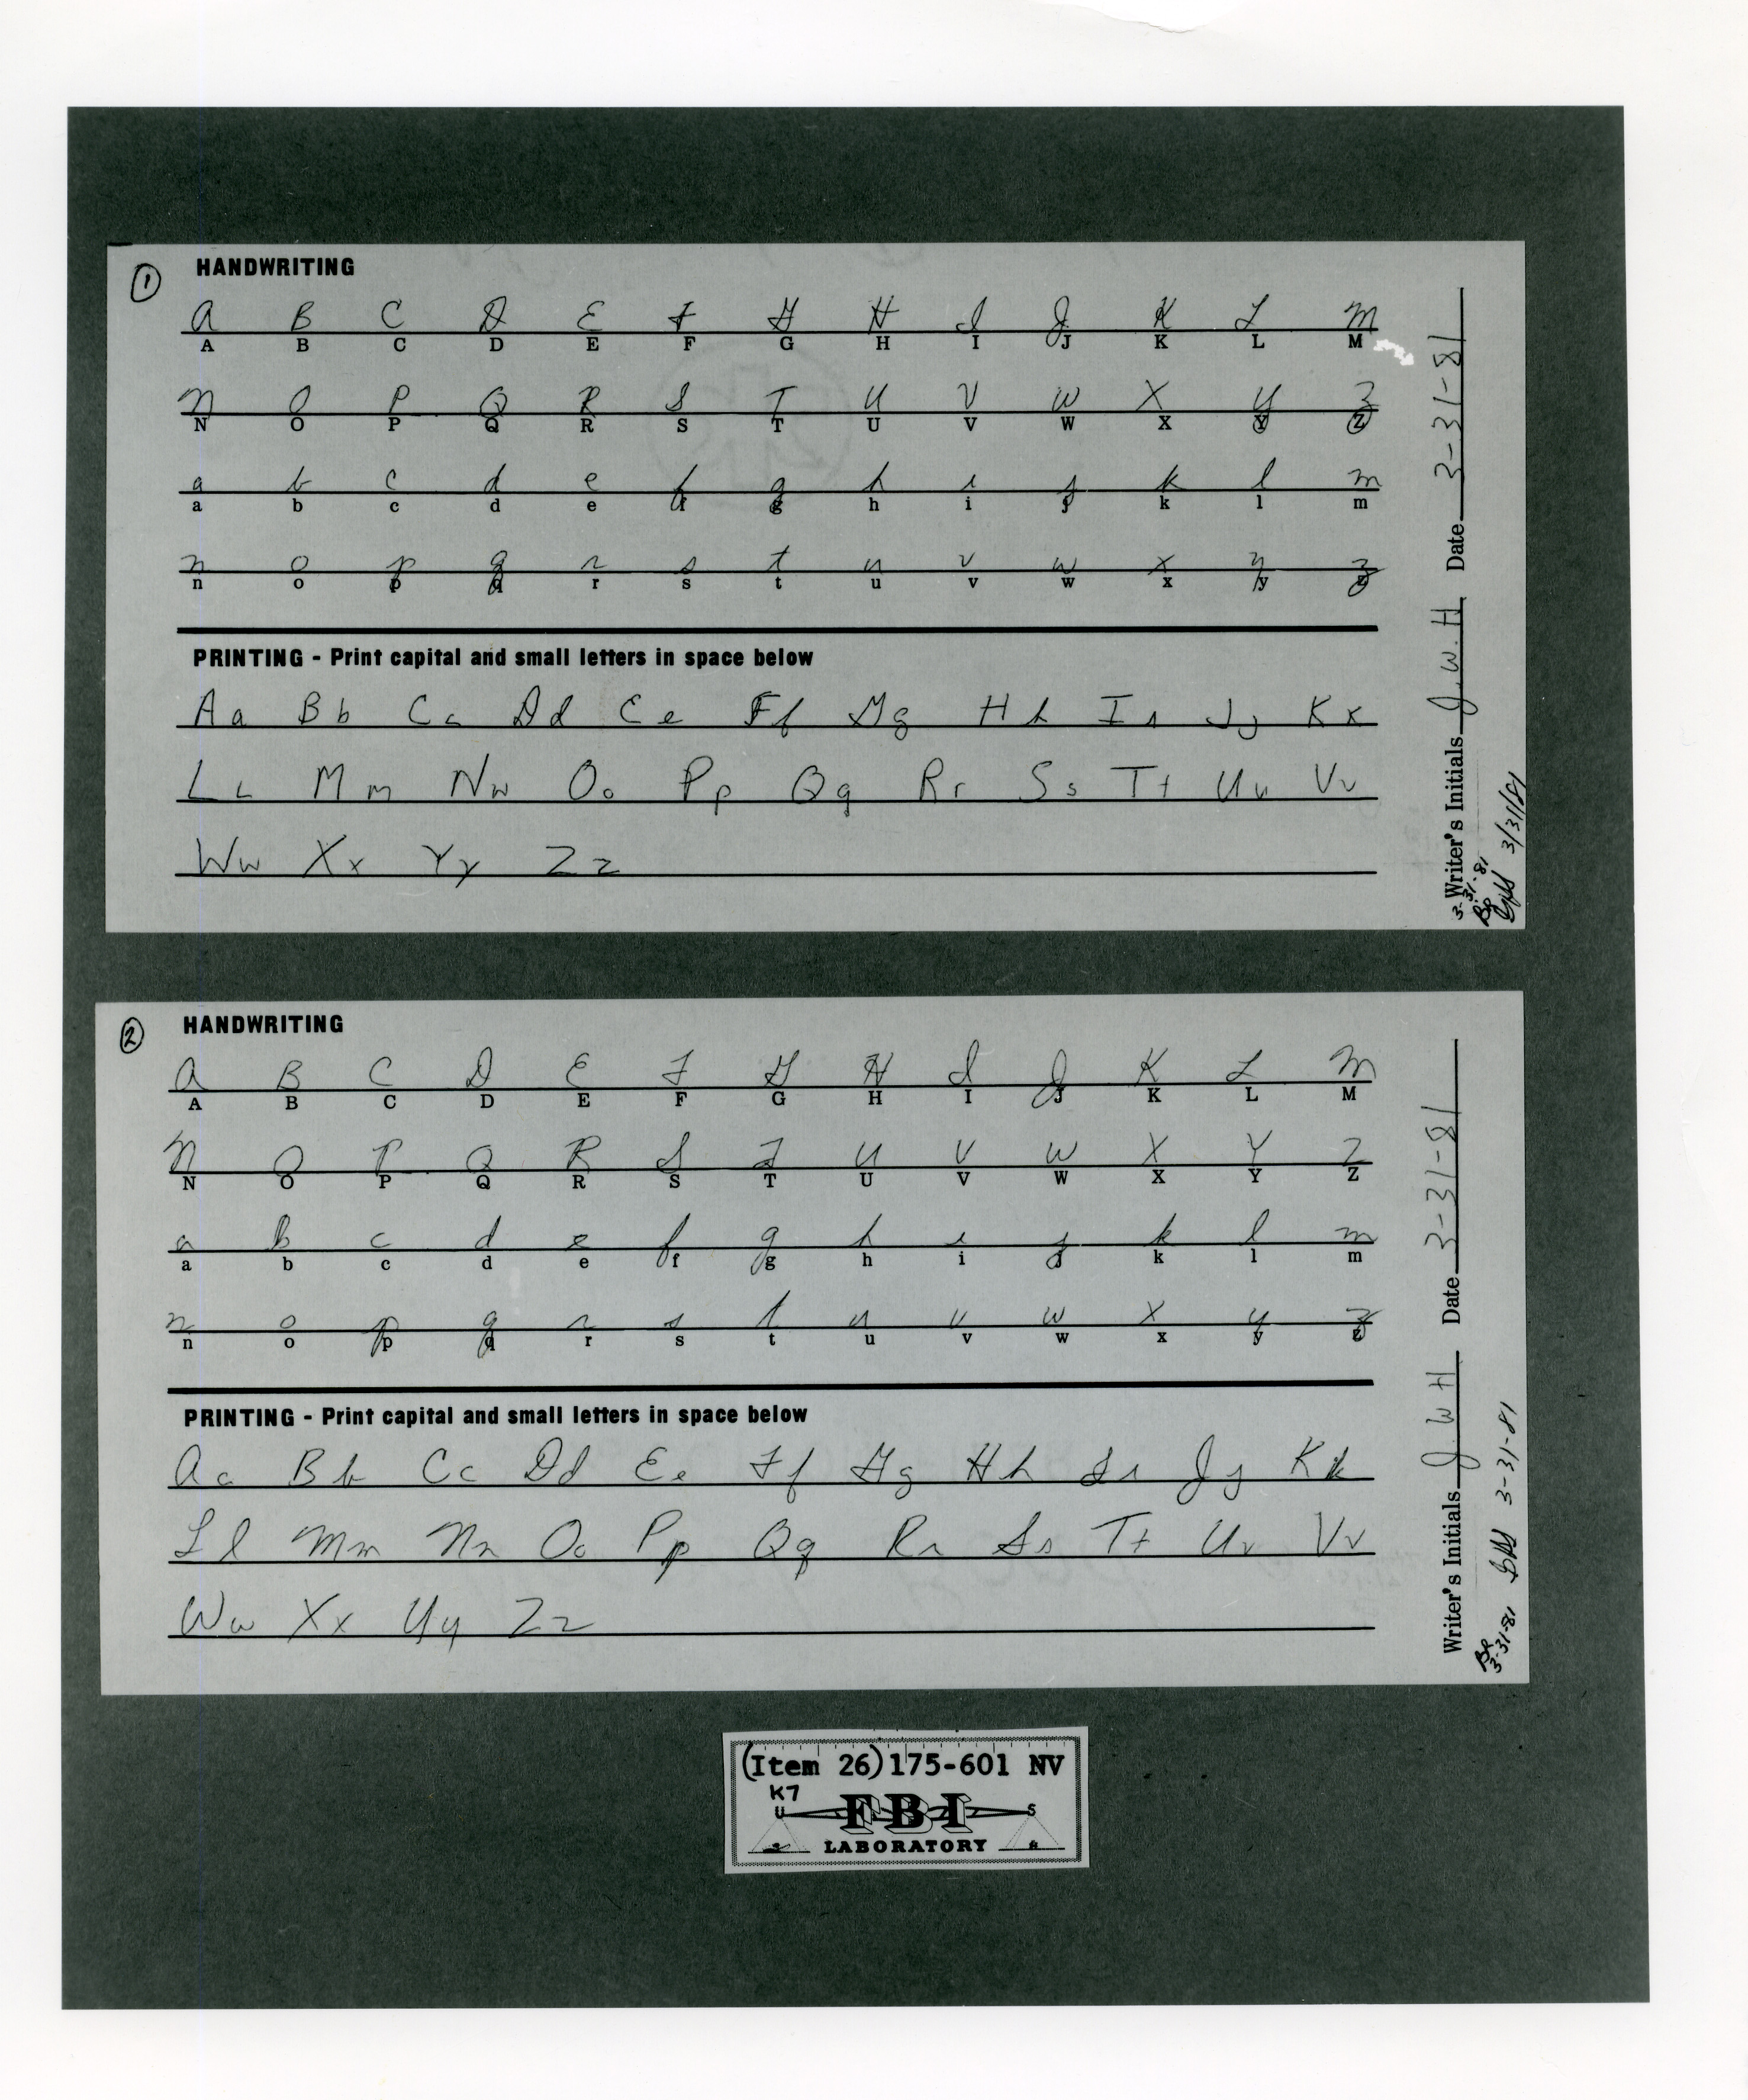 ① HANDWRITING
A B C D E F G H I J K L M
A B C D E F G H I J K L M
N O P Q R S T U V W X Y Z
N O P Q R S T U V W X Y Z
a b c d e f g h i j k l m
a b c d e f g h i j k l m
n o p q r s t u v w x y z
n o p q r s t u v w x y z
PRINTING - Print capital and small letters in space below
Aa Bb Cc Dd Ee Ff Gg Hh Ii Jj Kk
Ll Mm Nn Oo Pp Qq Rr Ss Tt Uu Vv
Ww Xx Yy Zz
Writer's Initials J.W.H Date 3-31-81
3-31-81
3/31/81
② HANDWRITING
A B C D E F G H I J K L M
A B C D E F G H I J K L M
N O P Q R S T U V W X Y Z
N O P Q R S T U V W X Y Z
a b c d e f g h i j k l m
a b c d e f g h i j k l m
n o p q r s t u v w x y z
n o p q r s t u v w x y z
PRINTING - Print capital and small letters in space below
Aa Bb Cc Dd Ee Ff Gg Hh Ii Jj Kk
Ll Mm Nn Oo Pp Qq Rr Ss Tt Uu Vv
Ww Xx Yy Zz
Writer's Initials J W H Date 3-31-81
3-31-81
3-31-81
(Item 26)175-601 NV
K7
U FBI S
LABORATORY